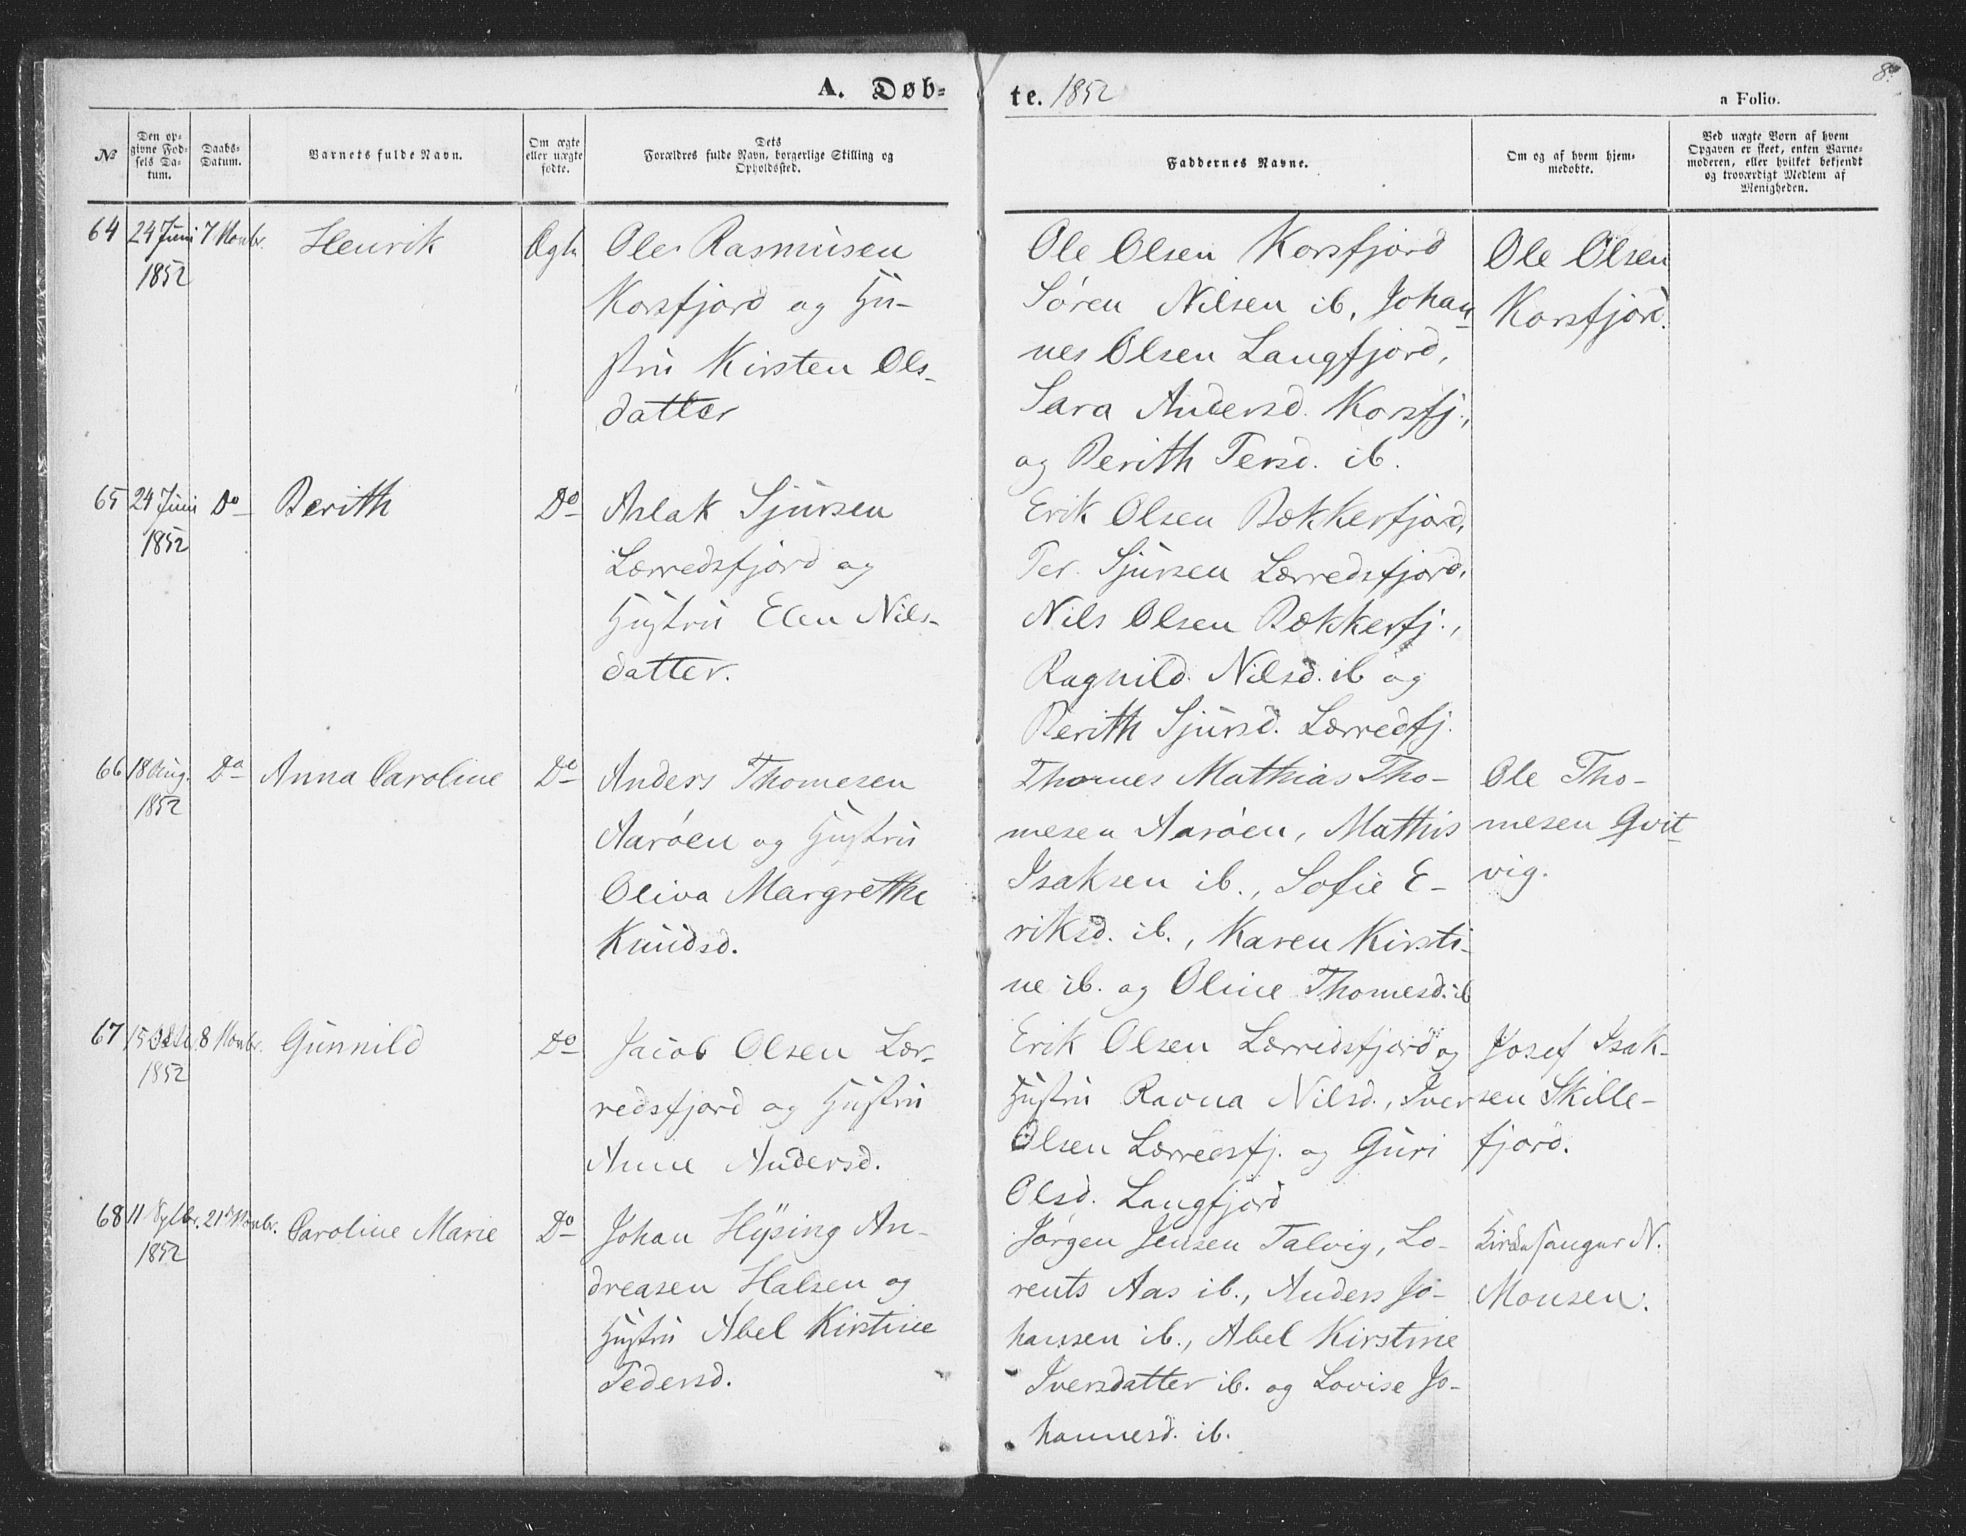 8.
A. Døb-
te. 1852
a Folio.
№
Den op-
givne Fød-
sels Da-
tum.
Daabs-
Datum.
Barnets fulde Navn.
Om ægte
eller uægte
fødte.
Dets
Forældres fulde Navn, borgerlige Stilling og
Opholdssted.
Faddernes Navne.
Om og af hvem hjem-
medøbte.
Ved uægte Børn af hvem
Opgaven er skeet, enten Barne-
moderen, eller hvilket bekjendt
og troværdigt Medlem af
Menigheden.
64
24 Juni
1852
7 Novbr.
Henrik
Ægte
Ole Rasmusen
Korsfjord og Hu-
stru Kirsten Ols-
datter
Ole Olsen Korsfjord
Søren Nilsen ib, Johan-
nes Olsen Langfjord,
Sara Andersd. Korsfj.,
og Berith Persd. ib.
Ole Olsen
Korsfjord.
65
24 Juni
1852
Do
Berith
Do
Aslak Sjursen
Lærredsfjord og
Hustru Elen Nils-
datter.
Erik Olsen Bækkerfjord,
Per Sjursen Lærredsfjord,
Nils Olsen Bækkerfj.,
Ragnild Nilsd. ib og
Berith Sjursd. Lærredfj.
66
18 Aug.
1852
Do
Anna Caroline
Do
Anders Thomesen
Aarøen og Hustru
Oliva Margrethe
Knudsd.
Thomes Mathias Tho-
mesen Aarøen, Mathis
Isaksen ib., Sofie E-
riksd. ib., Karen Kirsti-
ne ib. og Oline Thomesd. ib
Ole Tho-
mesen Qvit-
vig.
67
1852
8 Novbr.
Gunnild
Do
Jacob Olsen Lær-
redsfjord og Hustru
Anne Andersd.
Erik Olsen Lærredsfjord og
Hustru Ravna Nilsd., Iver
Olsen Lærredsfj. og Guri
Olsd. Langfjord
Josef Isak-
sen Skille-
fjord.
68
11
1852
21 Novbr.
Caroline Marie
Do
Johan Hysing An-
dreasen Halsen og
Hustru Abel Kirstine
Pedersd.
Jørgen Jensen Talvig, Lo-
rents Aas ib., Anders Jo-
hansen ib., Abel Kirstine
Iversdatter ib. og Lovise Jo-
hannesd. ib.
Kirkesanger N.
Monsen.